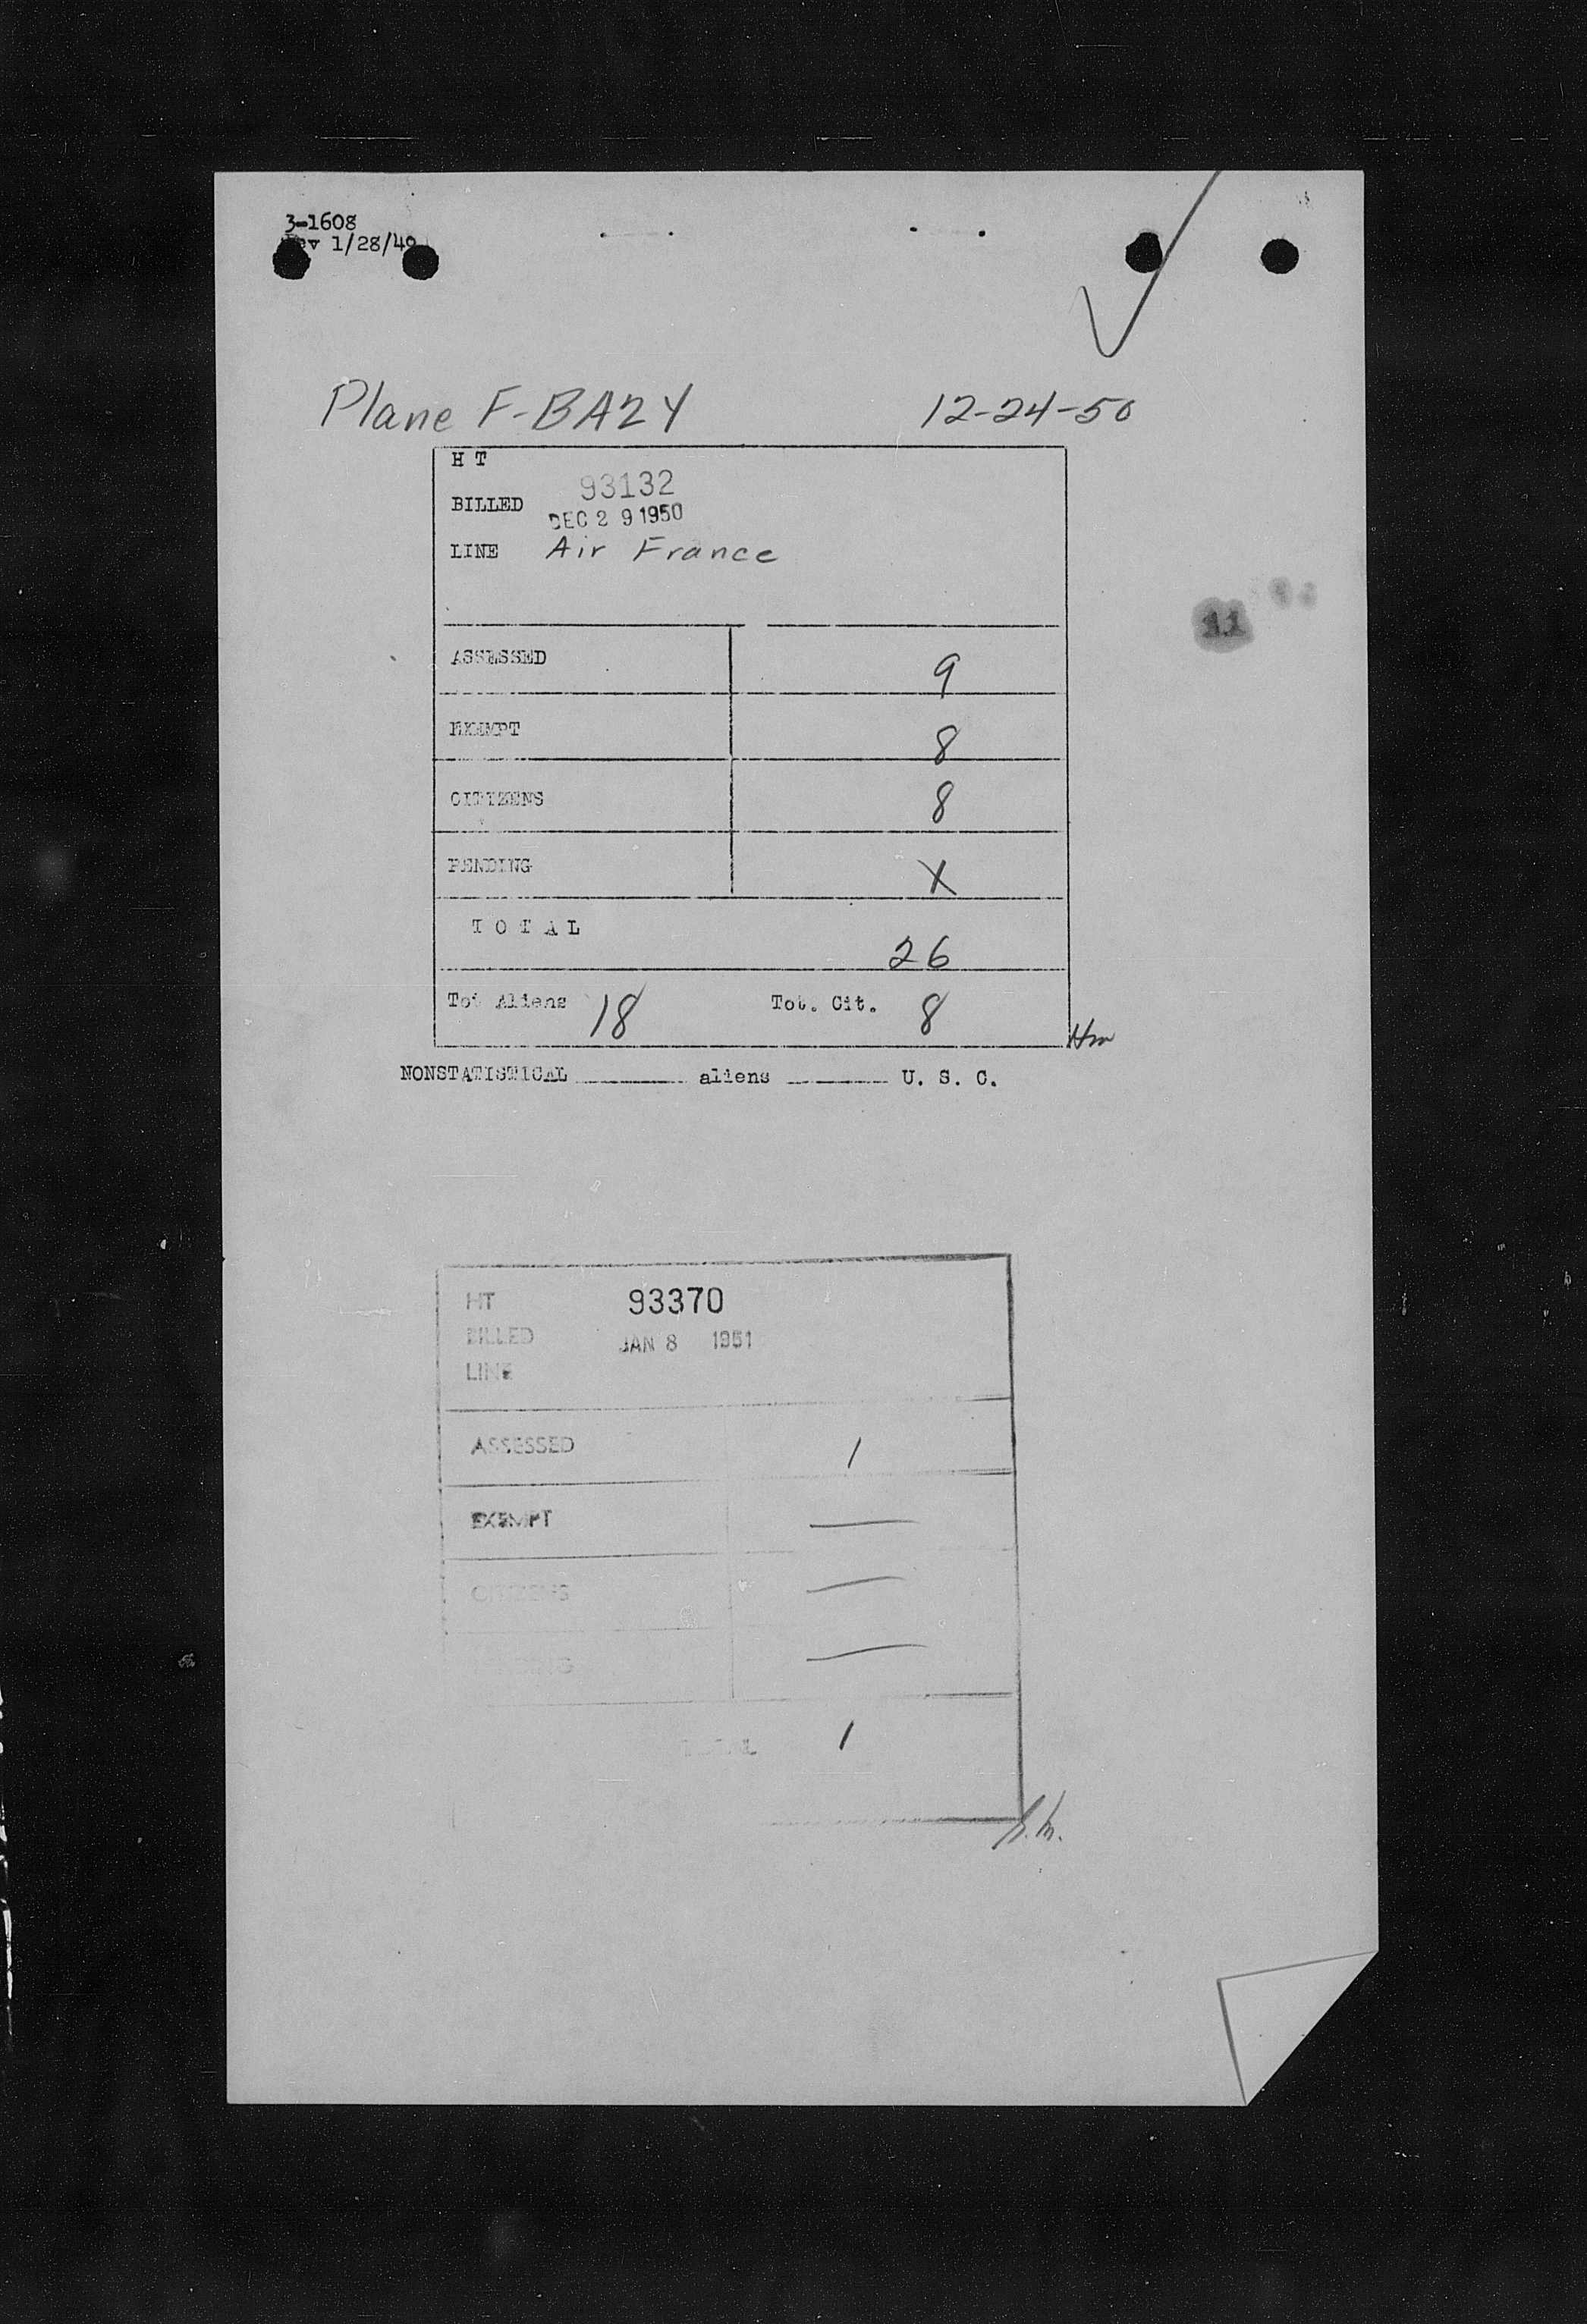 3-1608
Rev 1/28/49
Plane F-BAZY 12-24-50
H T 93132
BILLED DEC 29 1950
LINE Air France
11
ASSESSED 9
EXEMPT 8
CITIZENS 8
PENDING X
T O T A L 26
Tot Aliens 18 Tot. Cit. 8
Hm
NONSTATISTICAL ______ aliens ______ U. S. C.
HT 93370
BILLED JAN 8 1951
LINE
ASSESSED 1
EXEMPT —
CITIZENS —
PENDING —
TOTAL 1